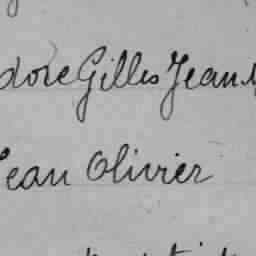 dore Gilles Jean
Jean Olivier